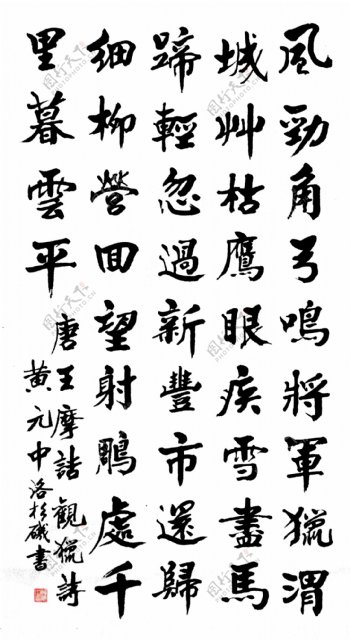 風勁角弓鳴將軍獵渭
城艸枯鷹眼疾雪盡馬
蹄輕忽過新豐市還歸
細柳營回望射鵰處千
里暮雲平
唐王摩詰觀獵詩
黄元中洛杉磯書